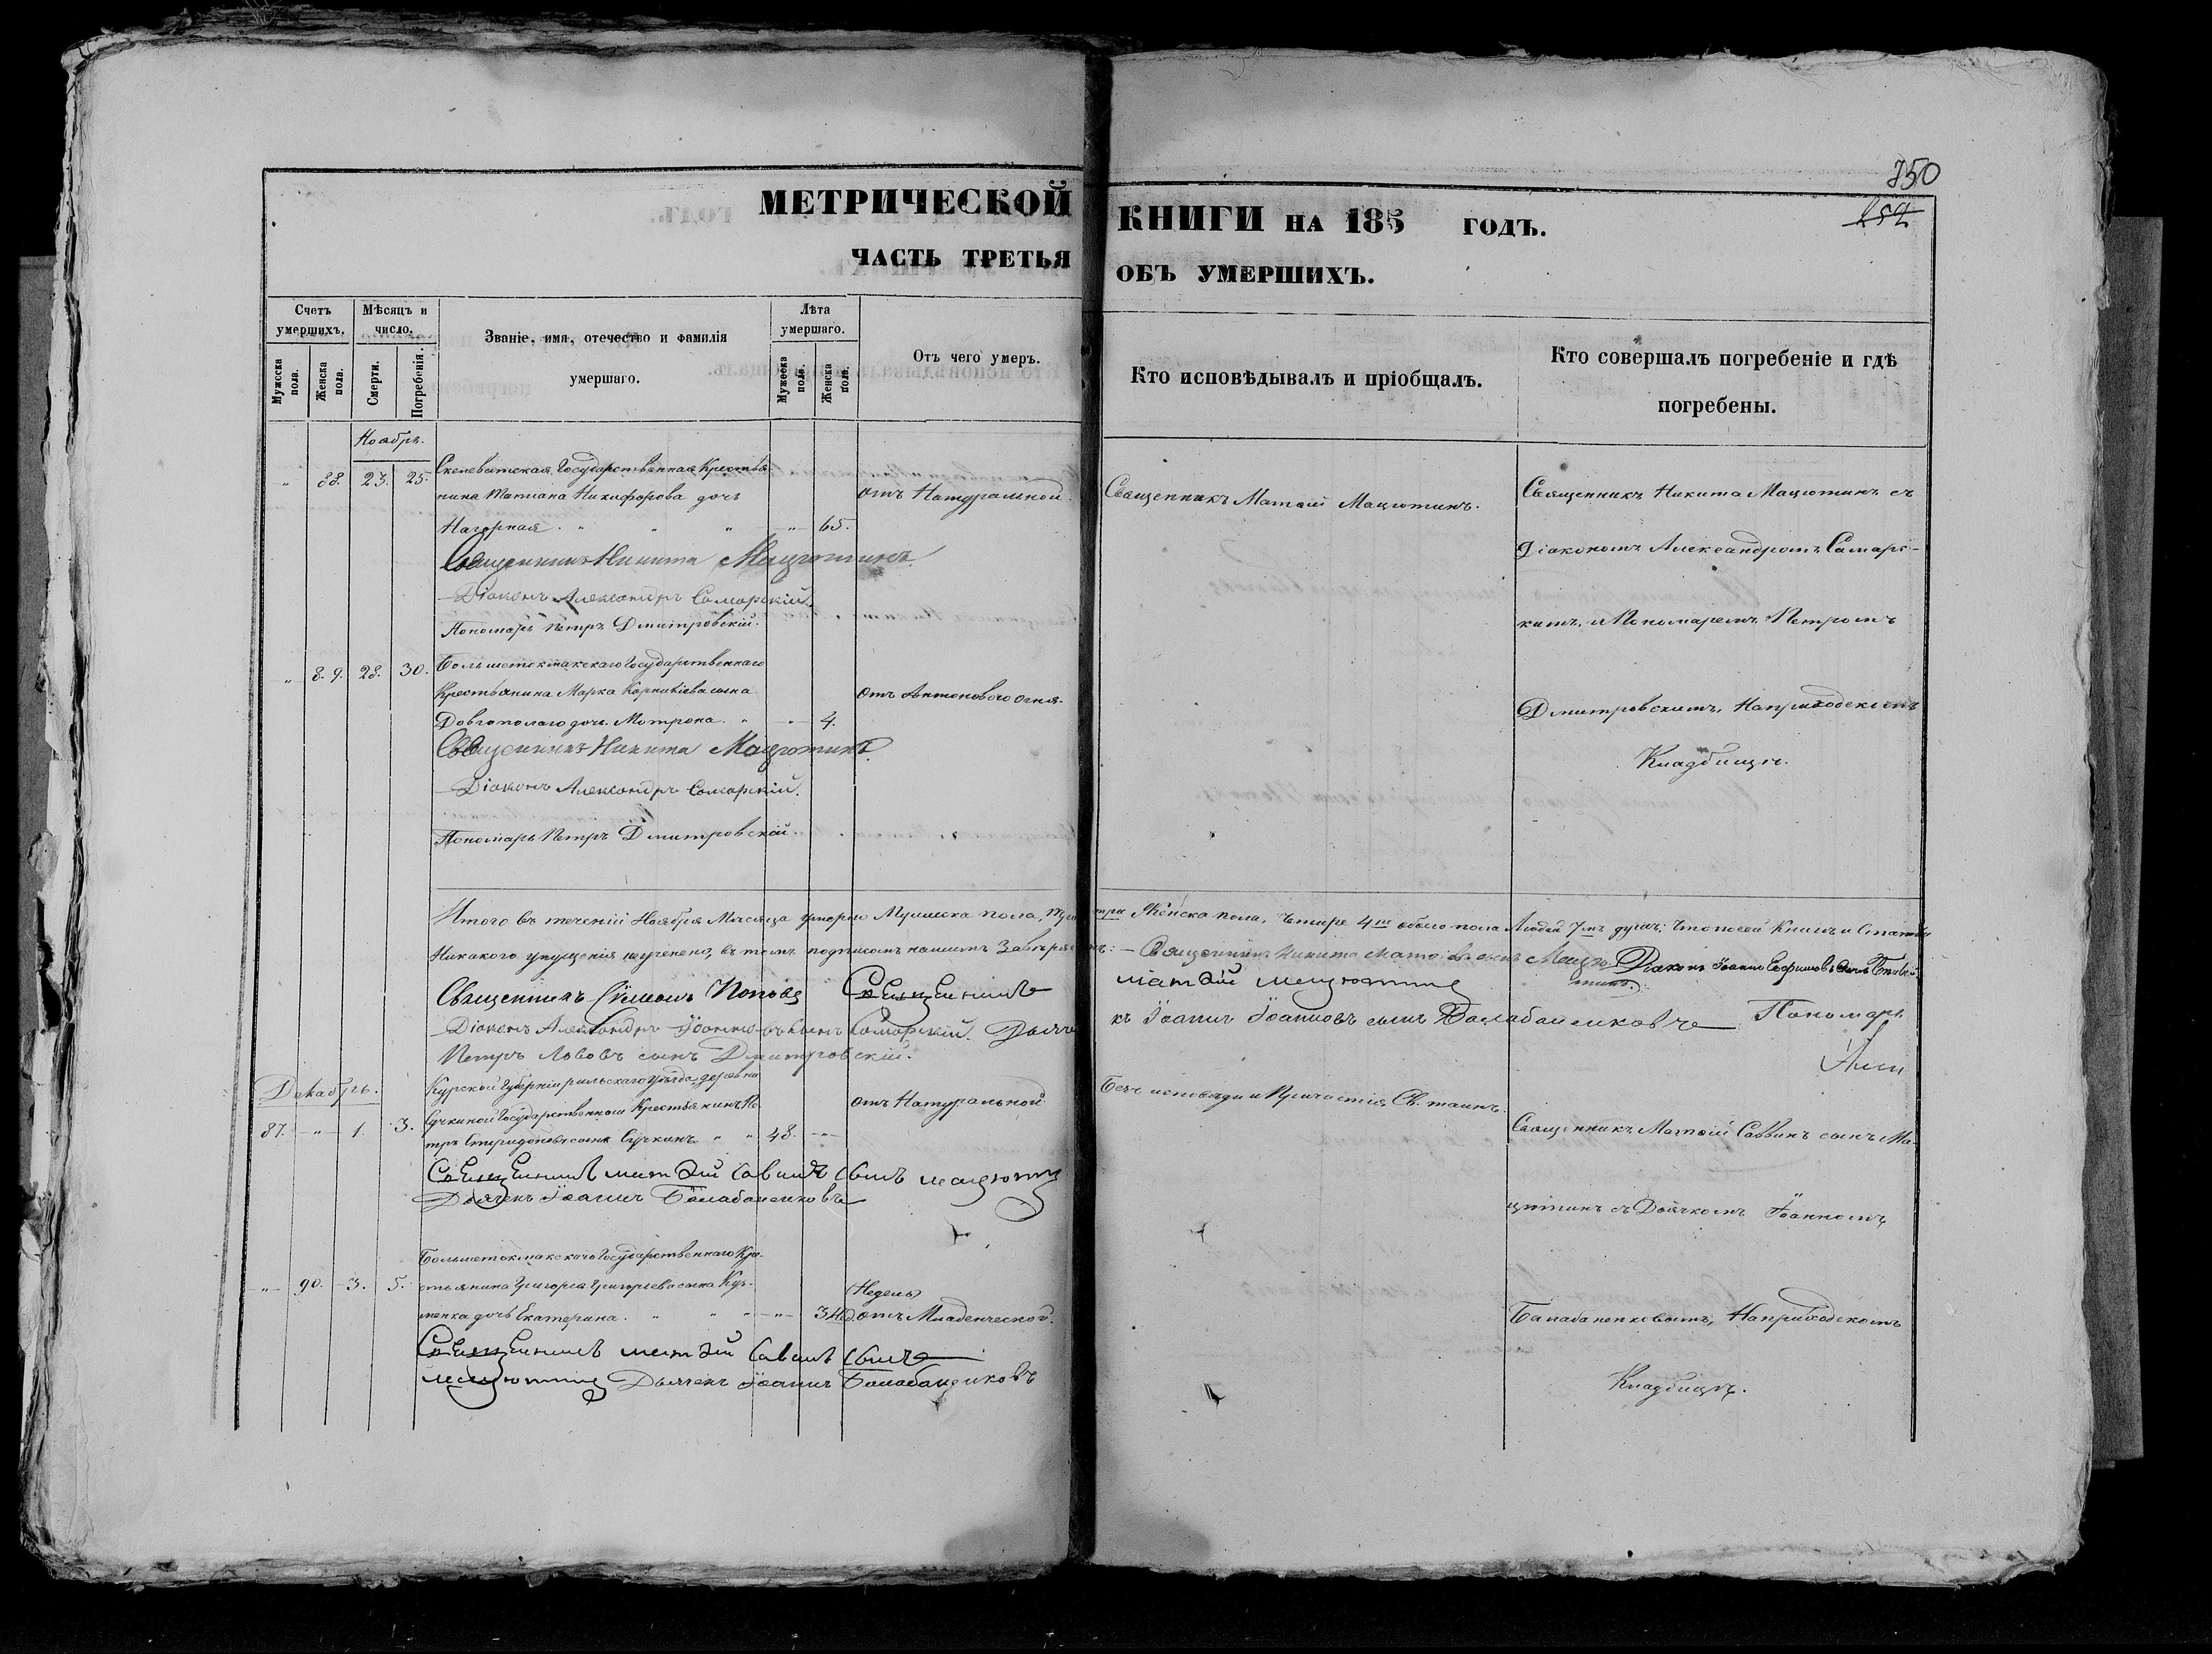 750
152
МЕТРИЧЕСКОЙ КНИГИ НА 185 ГОДЪ.
ЧАСТЬ ТРЕТЬЯ ОБЪ УМЕРШИХЪ.
Счетъ умершихъ.
Мужеска пола.
Женска пола.
Мѣсяцъ и число.
Смерти.
Погребенія.
Званіе, имя, отечество и фамилія
умершаго.
Лѣта умершаго.
Мужеска пола.
Женска пола.
Отъ чего умеръ.
Кто исповѣдывалъ и пріобщалъ.
Кто совершалъ погребеніе и гдѣ
погребены.
Ноябрь.
" 88. 23. 25. Государственная Крестья
нина Татиана Никифорова дочь
Нагорная. " " " " 65.
отъ Натуральной.
Священникъ Матѳій Мацютинъ.
Священникъ Никита Мацютинъ съ
Діакономъ Александромъ Самарс-
кимъ, и Пономаремъ Петромъ
Дмитровскимъ, На приходскомъ
Кладбищѣ.
Священникъ Никита Мацютинъ.
Діаконъ Александръ Самарскій.
Пономарь Петръ Дмитровскій.
" 89. 28. 30. Большетокмакскаго Государственнаго
Крестьянина Марка Корниліева сына
Довгополаго дочь Мотрона. " " 4.
отъ Антонового огня.
Священникъ Никита Мацютинъ.
Діаконъ Александръ Самарскій.
Пономарь Петръ Дмитровскій.
Итого въ теченіи Ноября Мѣсяца умерло Мужеска пола, три Женска пола, четыре 4 обоего пола Людей 7мъ душъ; Что по сей Книгѣ и Статьи
Никакого упущенія неучинено, въ томъ подписомъ нашимъ Завѣряемъ: Священникъ Никита Матѳіевъ сынъ Мацютинъ. Діаконъ Іоаннъ
Священникъ Сѵмеонъ Поповъ Священникъ Матѳій Мацютинъ
Діаконъ Александръ Іоанновъ сынъ Самарскій. Дьячекъ Іоаннъ Іоанновъ сынъ Балабаненковъ Пономарь
Петръ Львовъ сынъ Дмитровскій.
Декабрь.
87. " 1. 3. Курской Губерніи рильскаго уѣзда деревни
Сучкиной Государственной Крестьянинъ Пе
тръ Спиридоновъ сынъ Сучкинъ " " 48. "
отъ Натуральной
Безъ исповѣди и Причастія Св. таинъ.
Священникъ Матѳій Саввинъ сынъ Ма-
цютинъ съ Дьячкомъ Іоанномъ
Балабаненковымъ, На приходскомъ
Кладбищѣ.
Священникъ Матѳій Савинъ сынъ Мацютинъ
Дьячекъ Іоаннъ Балабаненковъ
" 90. 3. 5. Большетокмакскаго Государственнаго Кре-
стьянина Григорія Григорьева сына Ку-
менка дочь Екатерина. " " " " 3 Нед.
Недель
отъ Младенческой.
Священникъ Матѳій Савинъ сынъ
Мацютинъ Дьячекъ Іоаннъ Балабаненковъ